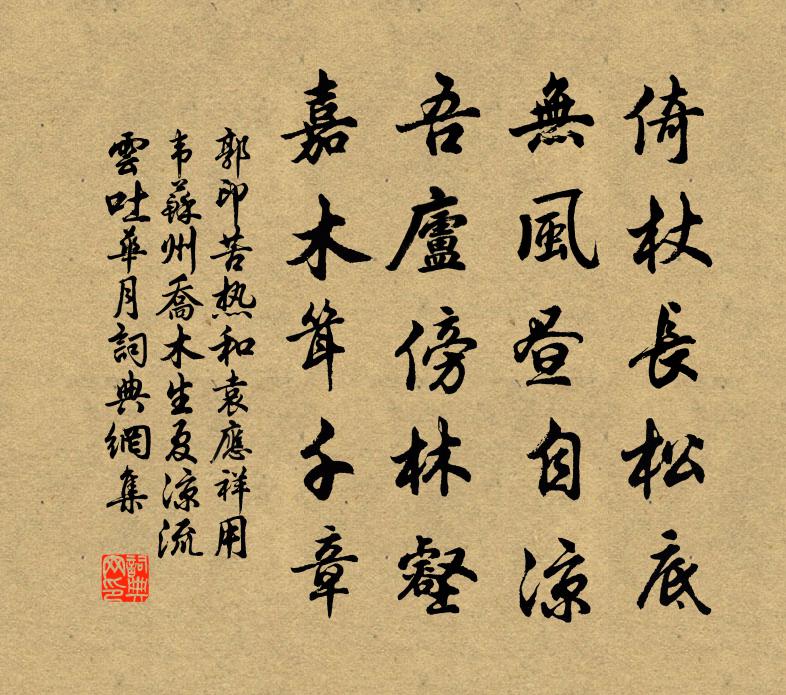 倚杖長松底
無風晝自涼
吾廬傍林壑
嘉木聳千章
郭印苦熱和袁應祥用
韦蘇州喬木生夏涼流
雲吐華月詞典網集
詞典網印